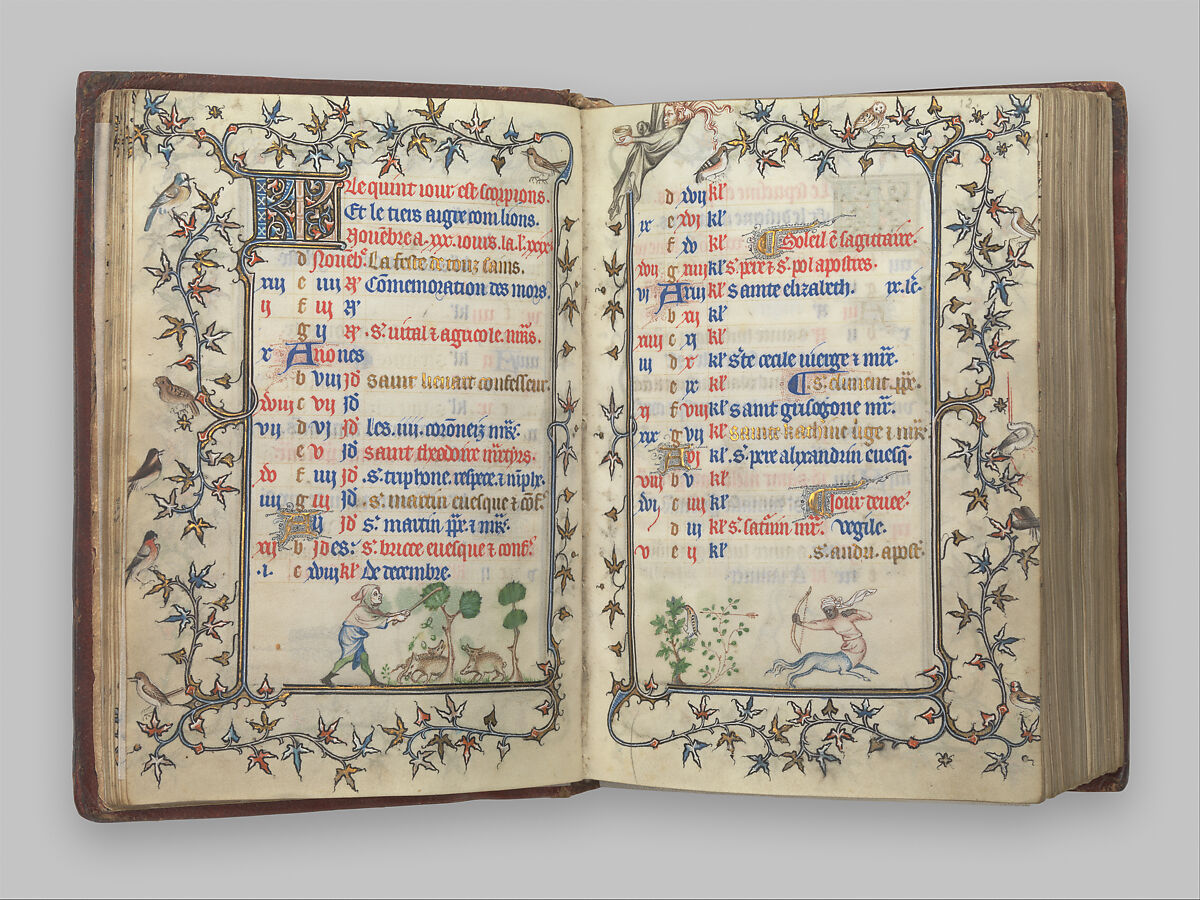 Le quint iour est scorpions.
Et le tiers aigre com lions.
Nouēbre a .xxx. iours. la l. xxx
d Noueb͛ La feste de touz sains.
xiij e iiij N͛ Cōmemoration des mors.
ij f iij N͛
g ij N͛ .s͛. uital ⁊ agricole. mr͛s.
x A nones
b viij jd͛ saint lienart confesseur.
xviij c vij jd͛
vij d vj jd͛ les .iiij. coroneiz mr͛.
e v jd͛ saint theodore mr͛tyrs.
xv f iiij jd͛ .s͛. triphone.
iiij g iij jd͛ .s͛. martin euesque ⁊ cōf͛.
A ij jd͛ s͛. martin pp͛e. ⁊ mr͛.
xij b jdes: s͛. brice euesque ⁊ conf͛.
.i. c xviij kl͛ de decembre.
d xvij kl͛
ix e xvj kl͛
f xv kl͛ Soleil ē sagittaire.
xvij g iiij kl͛ s͛. pere ⁊ s͛. pol apostres.
vj A xiij kl͛ sainte elizabeth. ix. le͛.
b xij kl͛
xiiij c xj kl͛
iij d x kl͛ s͛te cecile uierge ⁊ mr͛.
e ix kl͛ s͛. climent .pp͛e.
xj f viij kl͛ saint grisogone mr͛.
xix g vij kl͛ sainte katherine ⁊ mr͛.
A vj kl͛ .s͛. pere alixandrin euesq͛.
viij b v kl͛
xvj c iiij kl͛
d iij kl͛ s͛. mr͛. vegile.
v e ij kl͛ .s͛. andri. apost͛.
12